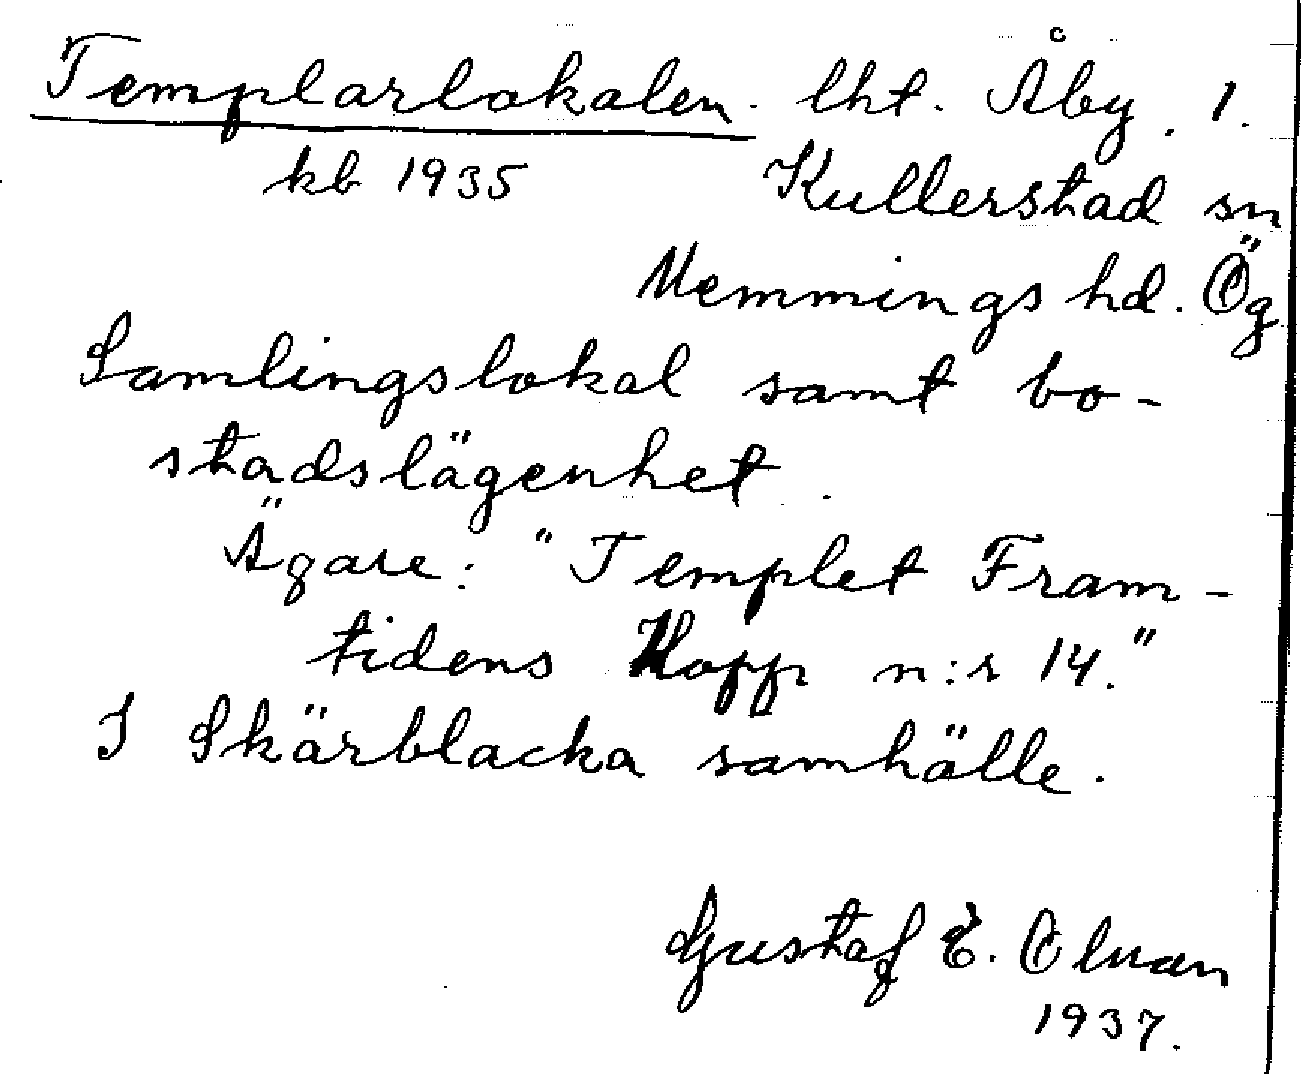 Templarlokalen. lht. Åby. 1.
kb 1935 Kullerstad sn
Memmings hd. Ög
Samlingslokal samt bo-
stadslägenhet.
Ägare: "Templet Fram-
tidens Hopp n:r 14."
I Skärblacka samhälle.
Gustaf E. Olman
1937.